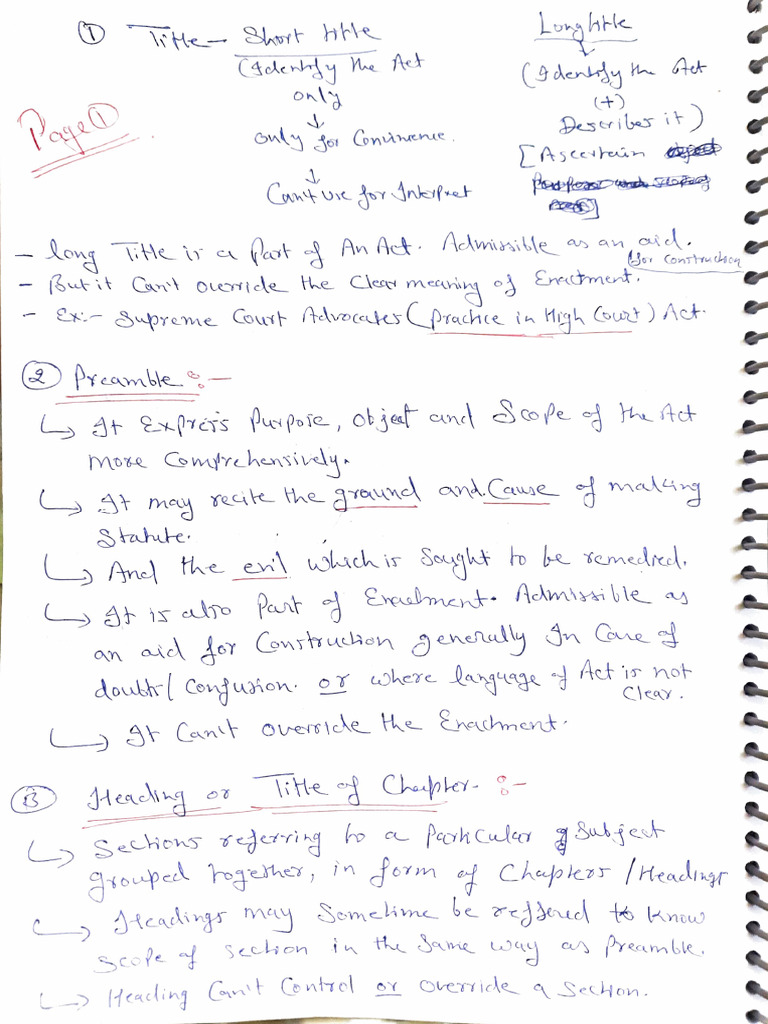 ① Title - Short title
Long title
(Identify the Act
only
↓
only for Convinence.
↓
Can't use for Interpret
↓
(Identify the Act
(+)
Describes it)
[Ascertain
]
Page ①
- Long Title is a Part of An Act. Admissible as an aid.
for Construction
- But it Can't override the Clear meaning of Enactment.
- Ex:- Supreme Court Advocates (Practice in High Court) Act.
② Preamble :-
↳ It Express Purpose, Object and Scope of the Act
more Comprehensively.
↳ It may recite the ground and Cause of making
Statute.
↳ And the evil which is Sought to be remedied.
↳ It is also Part of Enactment. Admissible as
an aid for Construction generally In Case of
doubt/ Confusion. or where language of Act is not
Clear.
↳ It Can't override the Enactment.
③ Heading or Title of Chapter. :-
↳ Sections referring to a Particular Subject
grouped together, in form of Chapters / Headings
↳ Headings may Sometime be reffered to Know
Scope of section in the Same way as Preamble.
↳ Heading Can't Control or override a Section.